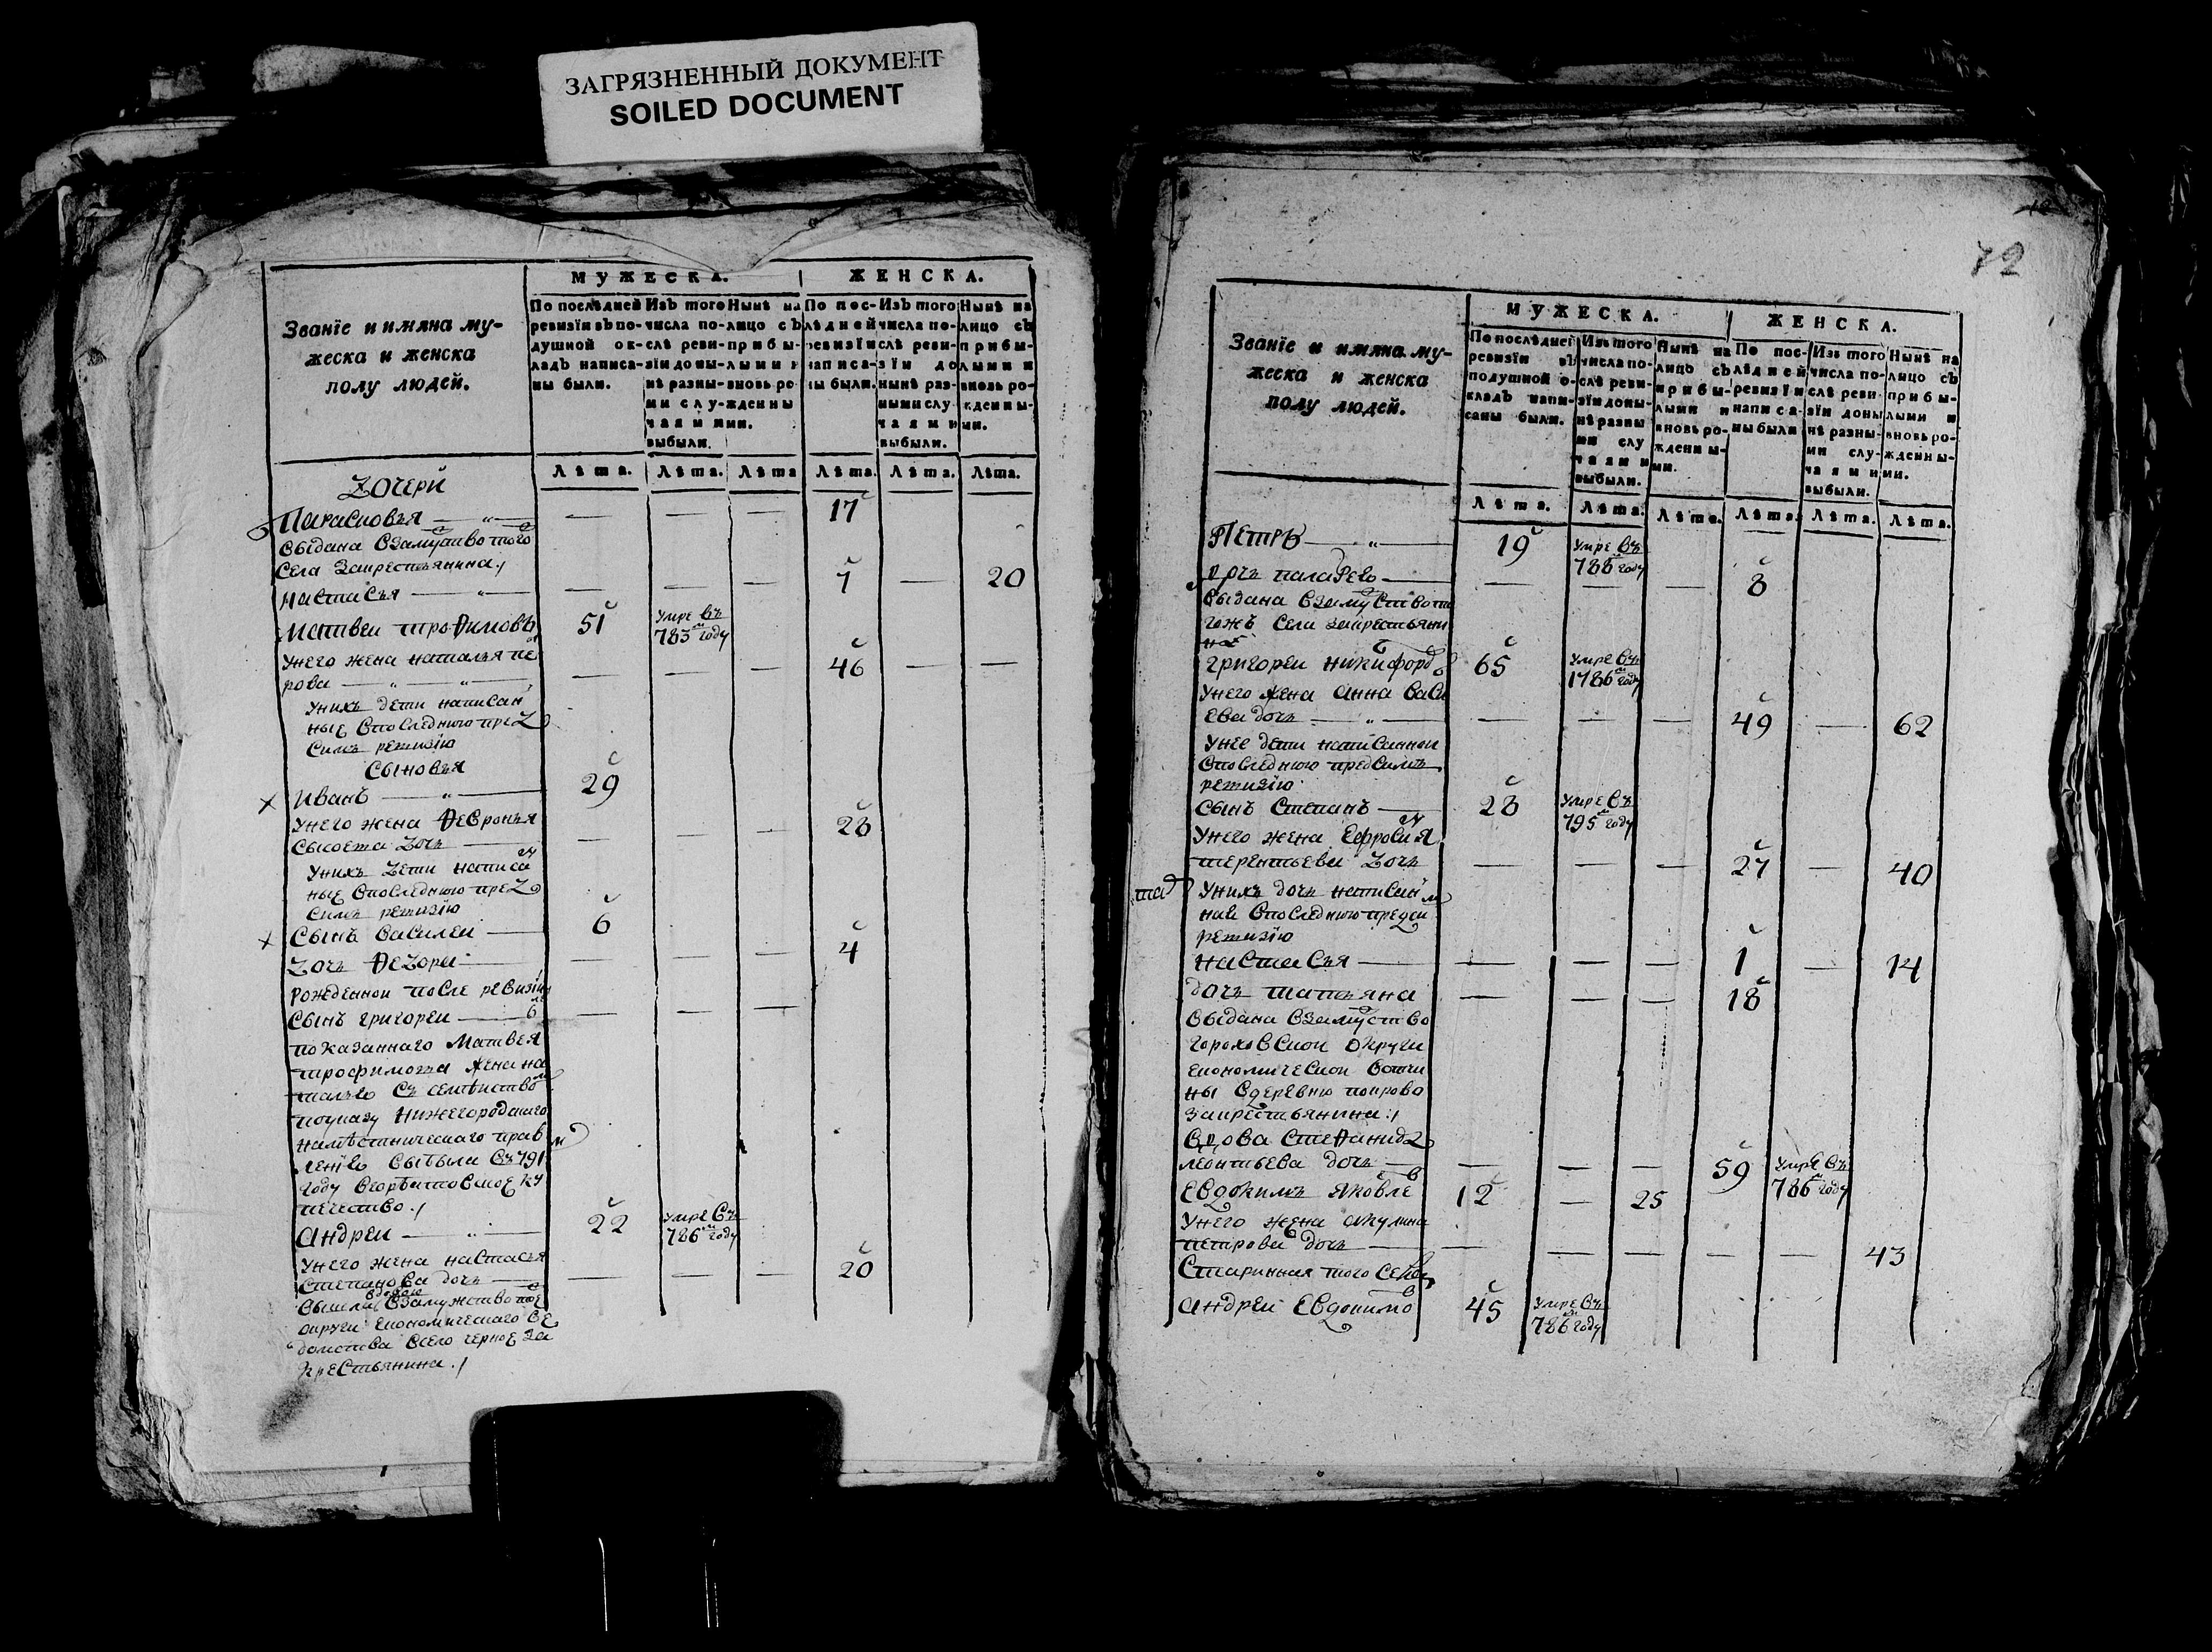 ЗАГРЯЗНЕННЫЙ ДОКУМЕНТ
SOILED DOCUMENT
Званїе и имяна му-
жеска и женска
полу людей.
МУЖЕСКА.
ЖЕНСКА.
По последней
ревизїи въ по-
душной ок-
ладъ написа-
ны были.
Изъ того
числа по-
слѣ реви-
зїи доны-
нѣ разны-
ми слу-
чаями
выбыли.
Нынѣ на
лицо съ
прибы-
лыми и
вновь ро-
жденны
ми.
По пос-
лѣдней
ревизїи
написа-
ны были.
Изъ того
числа по-
слѣ реви-
зїи до
нынѣ раз-
ными слу-
чаями
выбыли.
Нынѣ на
лицо съ
прибы-
лыми и
вновь ро-
жденны-
ми.
Лѣта. Лѣта. Лѣта Лѣта. Лѣта. Лѣта.
дочери
Парасковья 17
выдана взамуство того
села закрестьянина
настасья 7 20
Матвеи трофимовъ 51 умре въ 783м году
унего жена наталья пе
рова 46
унихъ дети написан
ные впоследнюю пред
симъ ревизїю
сыновья
иванъ 29
унего жена Февронья 28
сысоева дочь
унихъ дети написа
ные впоследнюю пред
симъ ревизїю
сынъ василеи 6
дочь Федора 4
рожденнои после ревизїи
сынъ григореи 6
показаннаго Матвея
трофимова жена на
талья съ семѣйством
поуказу нижегородскаго
намѣстническаго прав
ленїя выбыла въ 791м
году вгорбатовское ку
печество
андреи 22 умре въ 786м году
унего жена настасья
степанова дочь 20
вышла вдовою взамужство тое
округи економическаго ве
домства всело черное за
крестьянина
72
Званїе и имяна му-
жеска и женска
полу людей.
МУЖЕСКА.
ЖЕНСКА.
По послѣднеі
ревизїи въ
подушной о-
кладъ напи-
саны были.
Изъ того
числа по-
слѣ реви-
зїи доны-
нѣ разны
ми слу
чаями
выбыли.
Нынѣ на
лицо съ
прибы-
лыми и
вновь ро-
жденны-
ми.
По пос-
лѣдней
ревизїи
написа-
ны были
Изъ того
числа по-
слѣ реви-
зїи доны
нѣ разны-
ми слу-
чаями
выбыли.
Нынѣ на
лицо съ
прибы-
лыми и
вновь ро-
жденны-
ми.
Лѣта. Лѣта. Лѣта. Лѣта. Лѣта. Лѣта.
Петръ 19 умре въ 788м году
дочь 8
выдана взамуство то
гожъ села закрестьяни
на
григореи никифоров 65 умре въ 1786м году
унего жена анна васи
ева дочь 49 62
унее дети написаннои
впоследнюю предсимъ
ревизїю
сынъ степанъ 28 умре въ 795м году
унего жена ефросиня
терентьева дочь 27 40
унихъ дочь написан
ная впоследнюю предси
ревизїю
настасья 1 14
дочь татьяна 18
выдана взамуство
гороховскои округи
економическои вотчи
ны вдеревню
закрестьянина
вдова стефанида
леонтьева дочь 59 умре въ 786м году
Евдокимъ яковле 12 25
унего жена акулина
петрова дочь 43
Старинная того села
андреи Евдокимо 45 умре въ 786м году